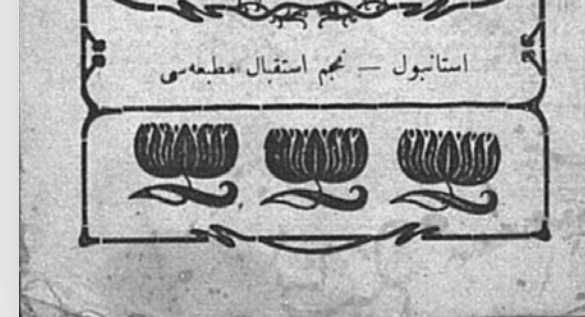 استانبول — نجم استقبال مطبعه‌سی